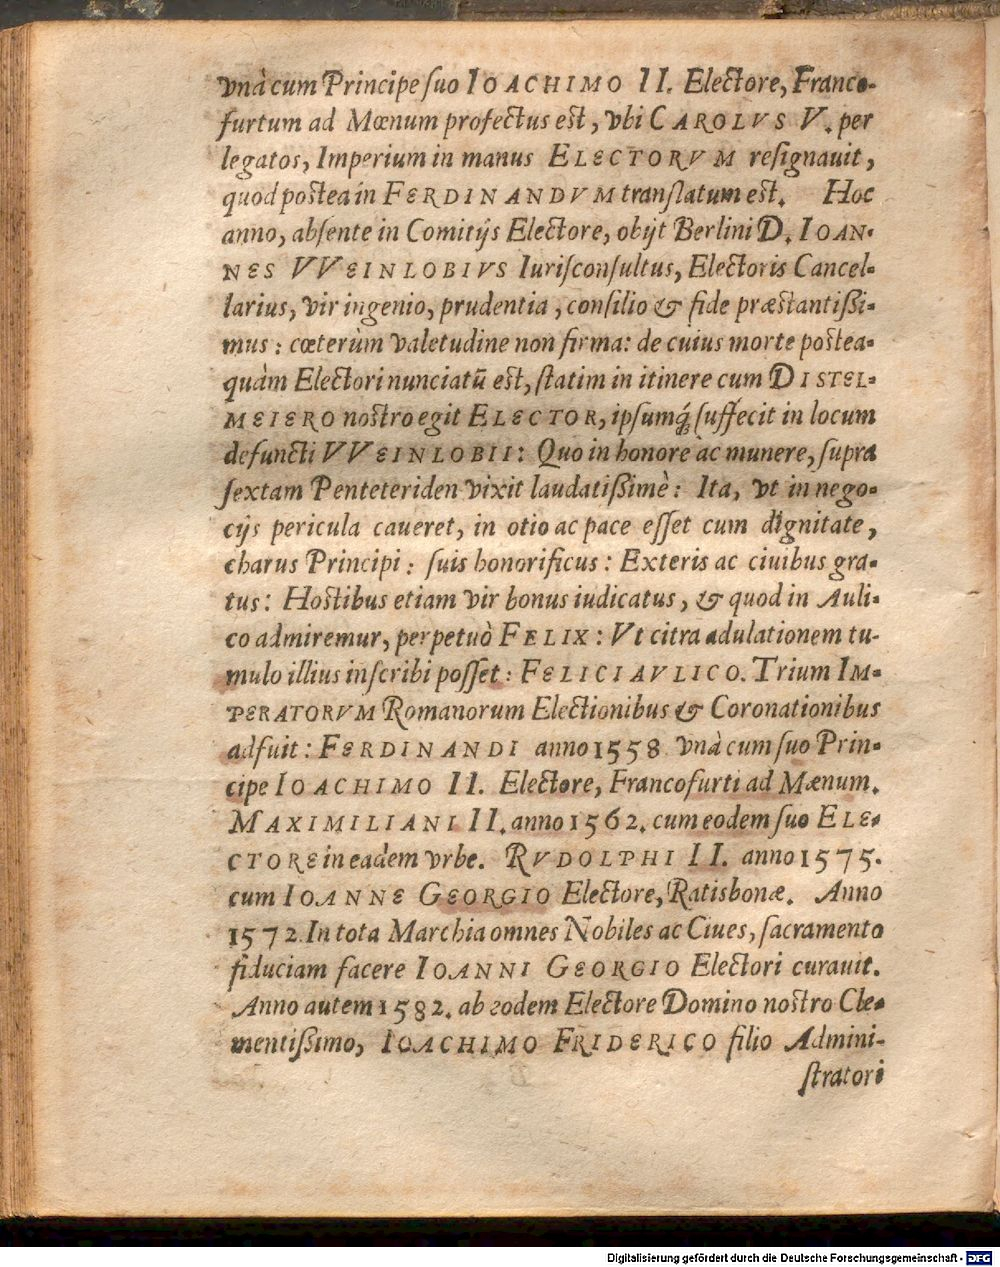 vnà cum Principe ſuo IOACHIMO II. Electore, Franco-
furtum ad Mœnum profectus est, vbi CAROLVS V. per
legatos, Imperium in manus ELECTORVM reſignauit,
quod postea in FERDINANDVM translatum est. Hoc
anno, abſente in Comitijs Electore, obijt Berlini D. IOAN-
NES VVEINLOBIVS Iuriſconſultus, Electoris Cancel-
larius, vir ingenio, prudentia, conſilio & fide præstantißi-
mus: cœterùm valetudine non firma: de cuius morte postea-
quàm Electori nunciatū est, ſtatim in itinere cum DISTEL-
MEIERO nostro egit ELECTOR, ipſumq́; ſuffecit in locum
defuncti VVEINLOBII: Quo in honore ac munere, ſupra
ſextam Penteteriden vixit laudatißimè: Ita, vt in nego-
cijs pericula caueret, in otio ac pace eſſet cum dignitate,
charus Principi: ſuis honorificus: Exteris ac ciuibus gra-
tus: Hostibus etiam vir bonus iudicatus, & quod in Auli-
co admiremur, perpetuò FELIX: Vt citra adulationem tu-
mulo illius inſcribi poſſet: FELICI AVLICO. Trium IM-
PERATORVM Romanorum Electionibus & Coronationibus
adfuit: FERDINANDI anno 1558 vnà cum ſuo Prin-
cipe IOACHIMO II. Electore, Francofurti ad Mænum.
MAXIMILIANI II. anno 1562. cum eodem ſuo ELE-
CTORE in eadem vrbe. RVDOLPHI II. anno 1575.
cum IOANNE GEORGIO Electore, Ratisbonæ. Anno
1572. In tota Marchia omnes Nobiles ac Ciues, ſacramento
fiduciam facere IOANNI GEORGIO Electori curauit.
Anno autem 1582. ab eodem Electore Domino nostro Cle-
mentißimo, IOACHIMO FRIDERICO filio Admini-
ſtratori
Digitalisierung gefördert durch die Deutsche Forschungsgemeinschaft - DFG